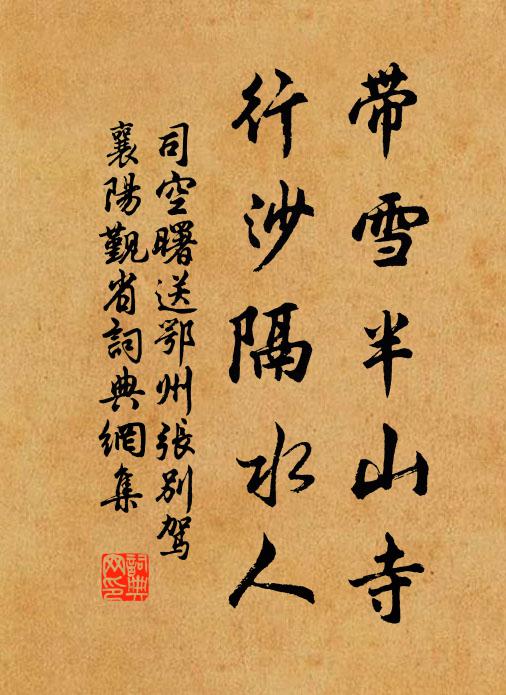 带雪半山寺
行沙隔水人
司空曙送鄂州張别駕
襄陽覲省詞典網集
詞典网印